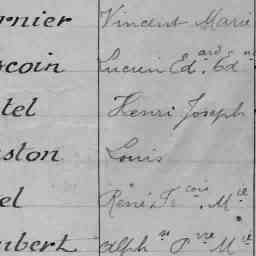 rnier Vincent Marie
rcoin Lucien Ed.ard Ed.
tel Henri Joseph
ston Louis
el René Fcois. Mie
mbert Alphse Prre Mie